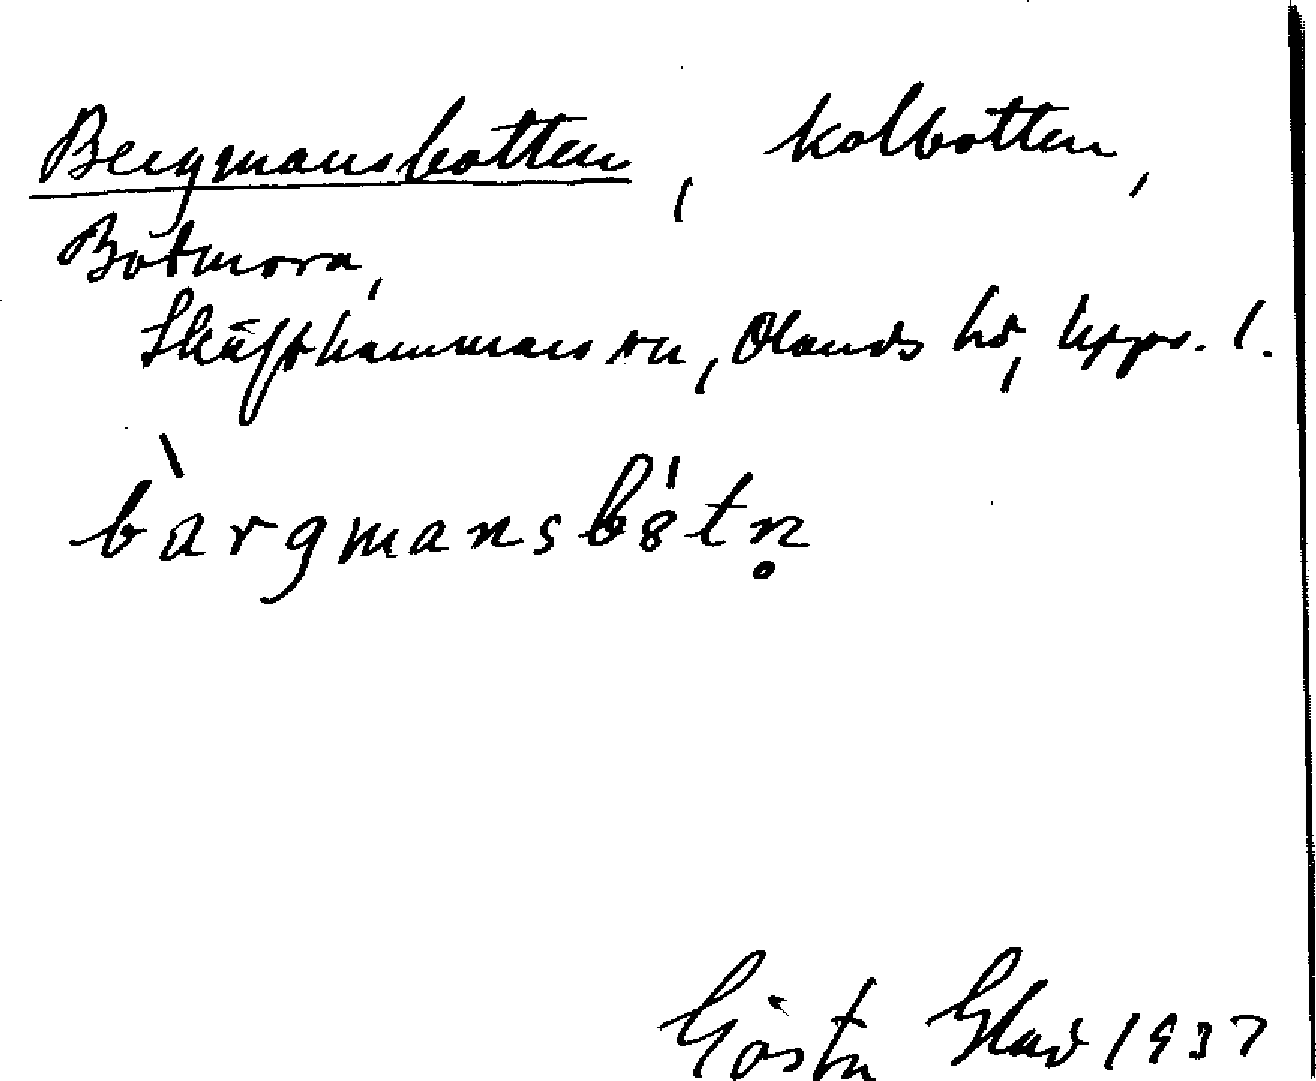 Bergmansbotten, kolbotten,
Botmora,
Skäfthammars sn, Olands hd, Upps. l.
bàrgmansbȣ́tn̥
Gösta Glad 1937